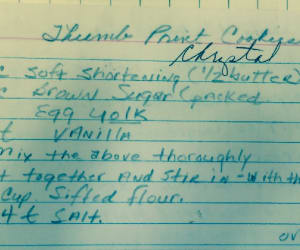 Thumb Print Cookies
Chrystal
c soft shortening (1/2 butter)
c brown sugar (packed
Egg yolk
t vanilla
mix the above thoroughly
t together and stir in - with the
cup sifted flour.
4 t salt.
ov